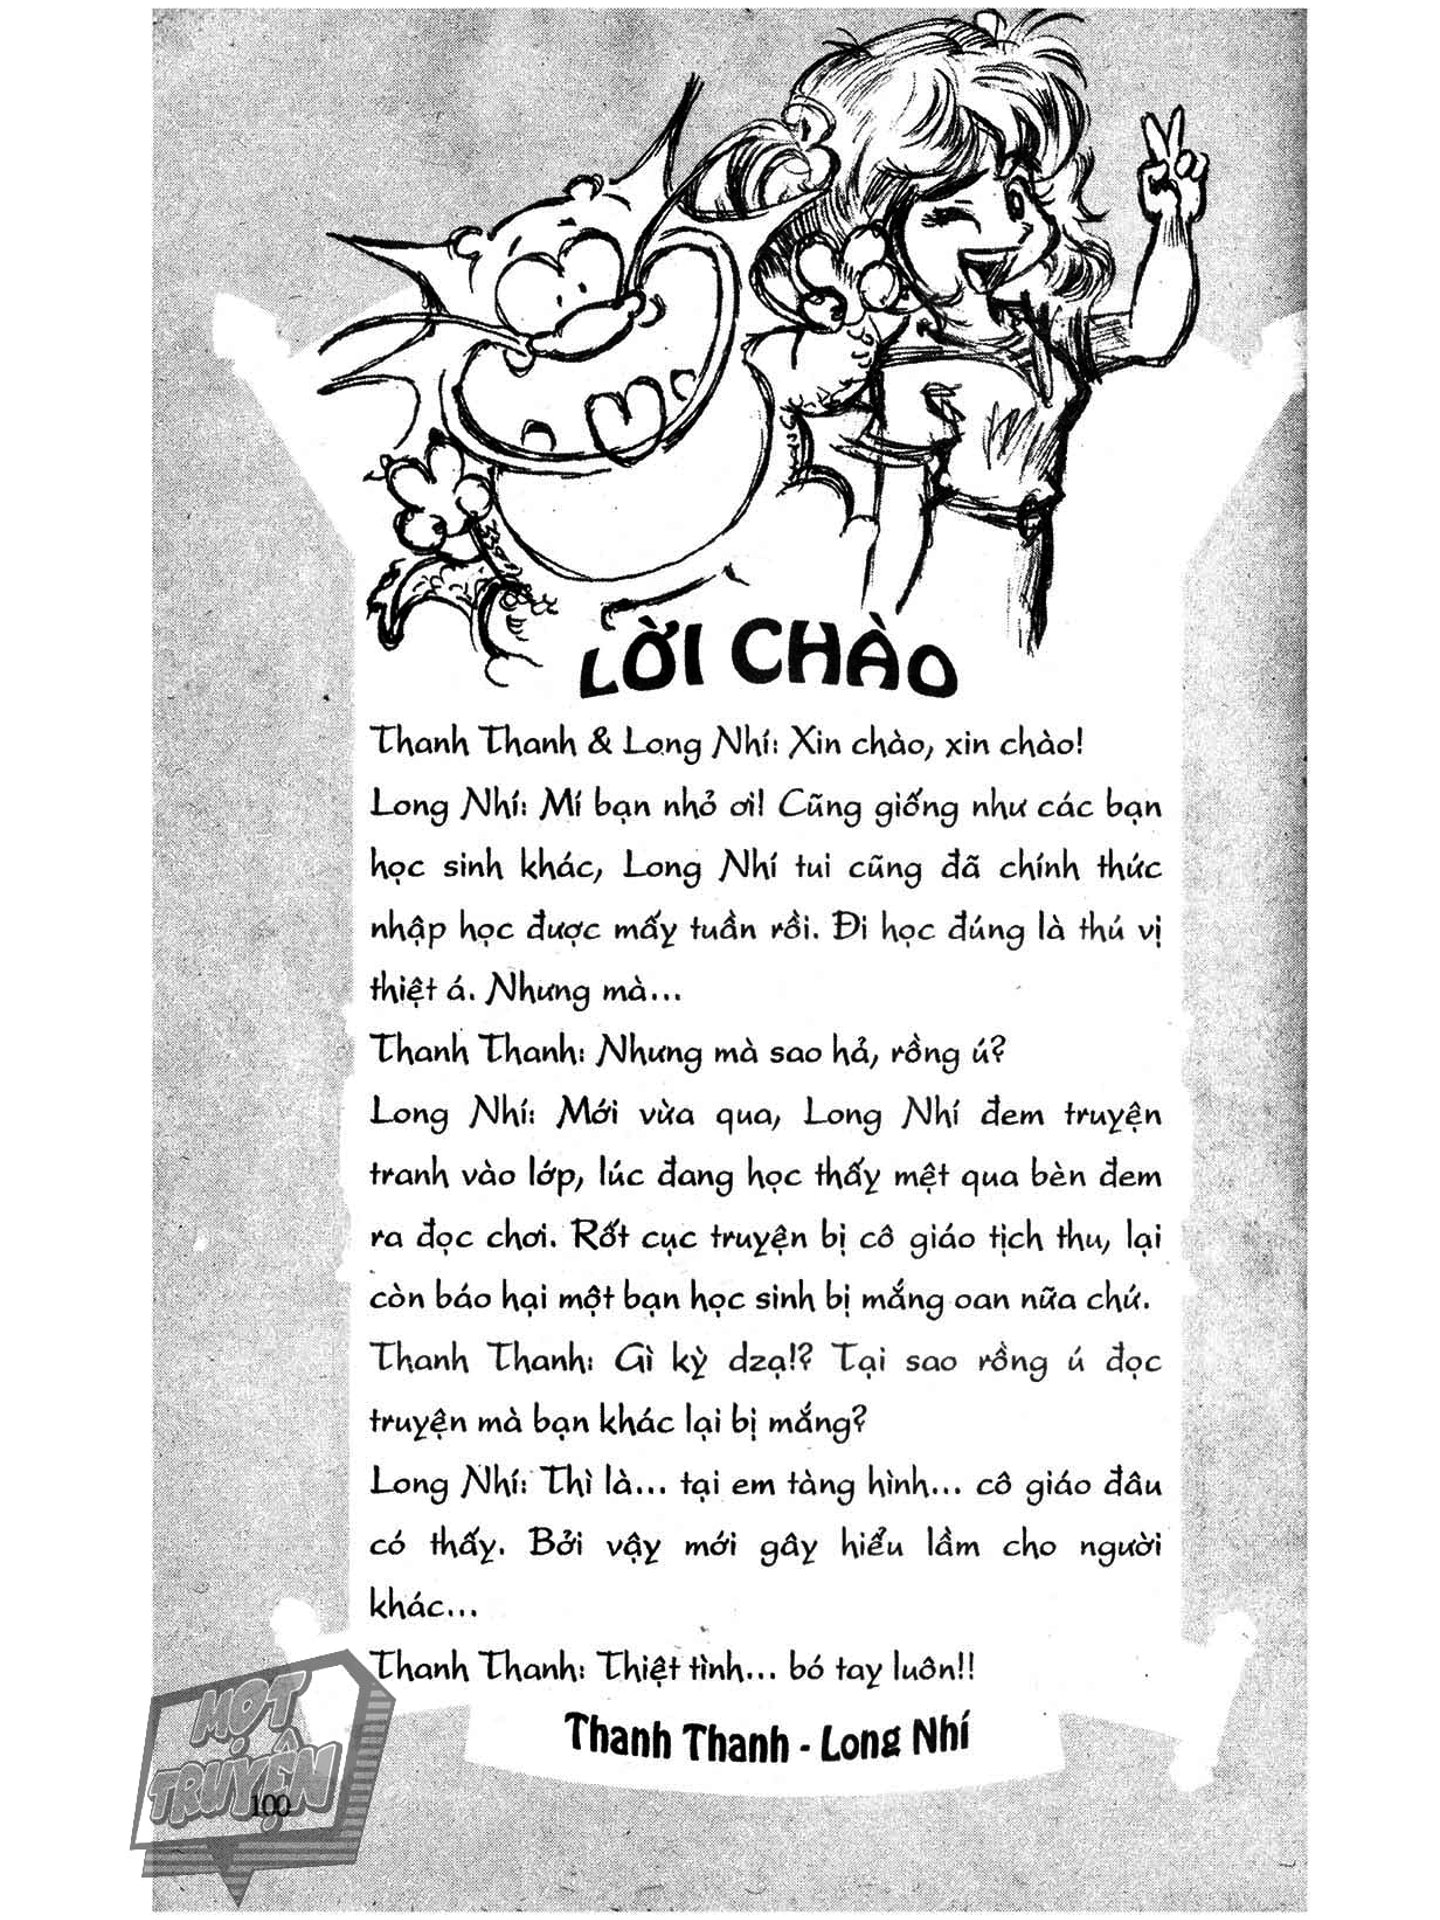 LỜI CHÀO
Thanh Thanh & Long Nhí: Xin chào, xin chào!
Long Nhí: Mí bạn nhỏ ơi! Cũng giống như các bạn
học sinh khác, Long Nhí tui cũng đã chính thức
nhập học được mấy tuần rồi. Đi học đúng là thú vị
thiệt á. Nhưng mà...
Thanh Thanh: Nhưng mà sao hả, rồng ú?
Long Nhí: Mới vừa qua, Long Nhí đem truyện
tranh vào lớp, lúc đang học thấy mệt qua bèn đem
ra đọc chơi. Rốt cục truyện bị cô giáo tịch thu, lại
còn báo hại một bạn học sinh bị mắng oan nữa chứ.
Thanh Thanh: Gì kỳ dzạ!? Tại sao rồng ú đọc
truyện mà bạn khác lại bị mắng?
Long Nhí: Thì là... tại em tàng hình... cô giáo đâu
có thấy. Bởi vậy mới gây hiểu lầm cho người
khác...
Thanh Thanh: Thiệt tình... bó tay luôn!!
Thanh Thanh - Long Nhí
MỌT
TRUYỆN
100